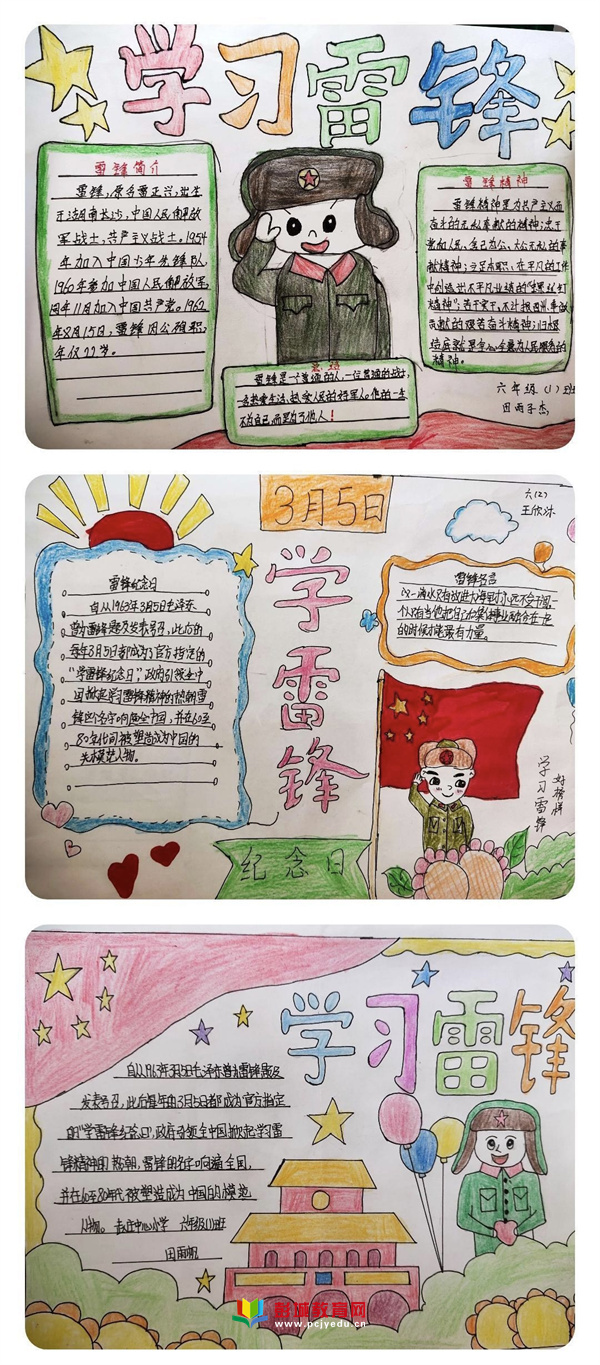 学习雷锋
雷锋简介
雷锋,原名雷正兴,出生
于湖南长沙,中国人民解放
军战士,共产主义战士。1954
年加入中国少年先锋队,
1960年参加中国人民解放军,
同年11月加入中国共产党。1962
年8月15日,雷锋因公殉职,
年仅22岁。
雷锋精神
雷锋精神是为共产主义而
奋斗的无私奉献的精神;忠于
党和人民、舍己为公、大公无私的奉
献精神;立足本职、在平凡的工作
中创造出不平凡业绩的"螺丝钉
精神";苦干实干、不计报酬、争做
贡献的艰苦奋斗精神;归根
结底就是全心全意为人民服务的
精神。
雷锋是一个普通的人,一位普通的战士
一名热爱生活,热爱人民的好军人。他的一生
不为自己,而是为了他人!
六年级(1)班
田雨子杰
3月5日
学雷锋
纪念日
六(2)
王欣冰
雷锋纪念日
自从1963年3月5日毛泽东
曾为雷锋题及发表号召,此后的
每年3月5日都成为了官方指定的
"学雷锋纪念日",政府引领全中
国掀起学习雷锋精神的热潮,雷
锋这个名字响遍全中国,并在60至
80年代间被塑造成为中国的
头模范人物。
雷锋名言
一滴水只有放进大海里才永远不会干涸,一
个人只有当他把自己和集体事业融合在一起
的时候才能最有力量。
学习雷锋
好榜样
学习雷锋
自从1963年3月5日毛泽东曾为雷锋题及
发表号召,此后每年由3月5日都成为官方指定
的"学雷锋纪念日",政府引领全中国掀起学习雷
锋精神的热潮,雷锋的名字响遍全国,
并在60至80年代被塑造成为中国的模范
人物。 中心小学 六年级(1)班
田雨帆
彭城教育网
www.pcjyedu.cn